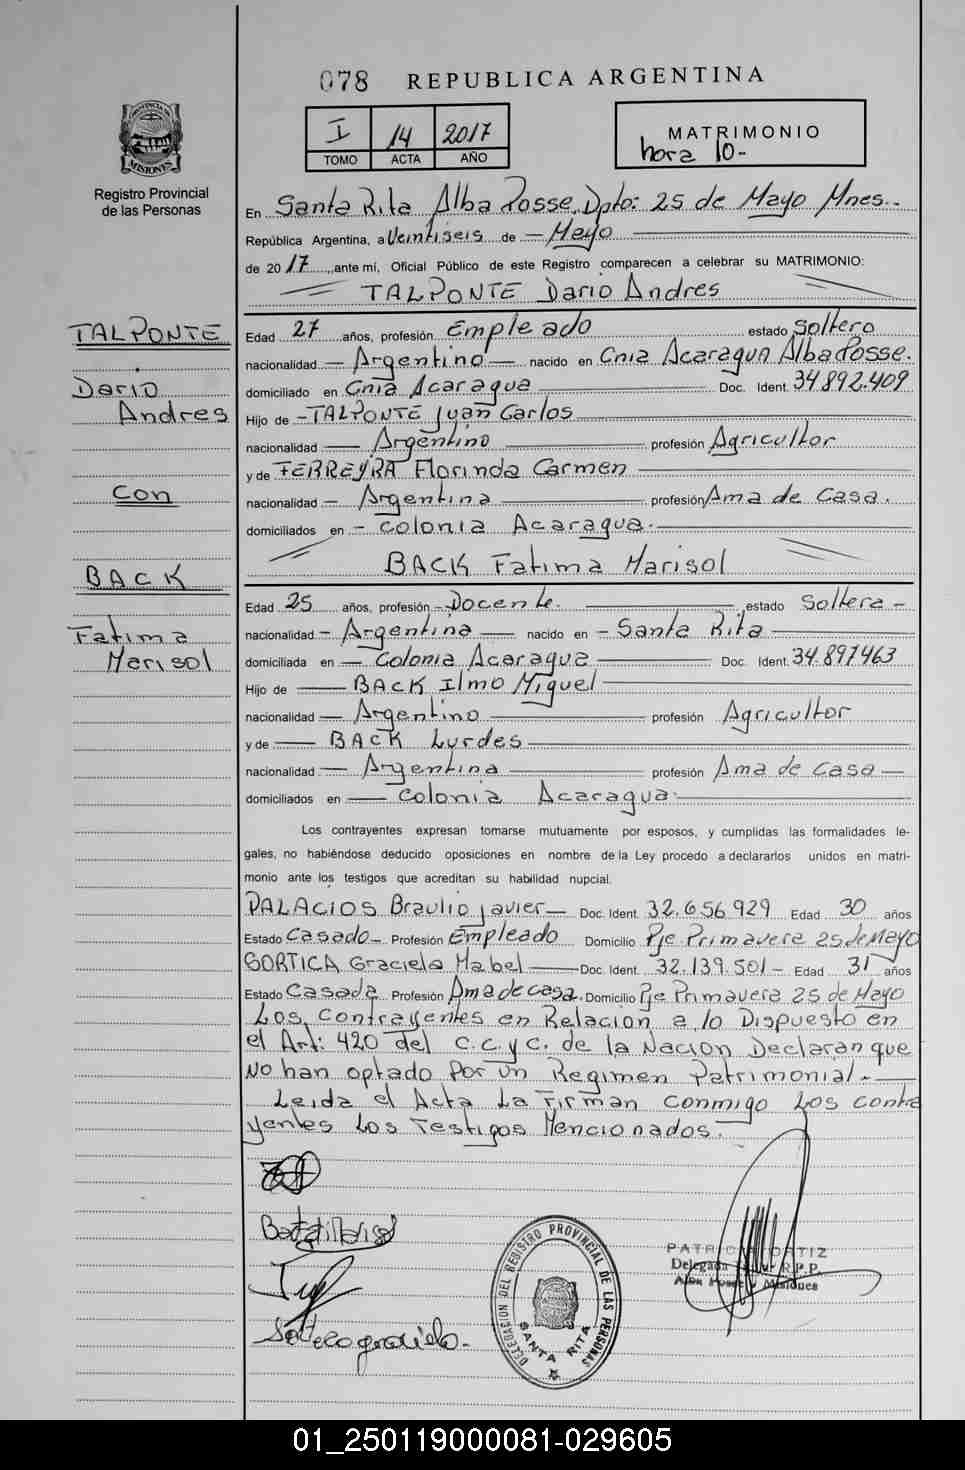 078 REPUBLICA ARGENTINA
PROVINCIA DE MISIONES
Registro Provincial
de las Personas
I 14 2017
TOMO ACTA AÑO
MATRIMONIO
hora 10-
En Santa Rita Alba Posse. Dpto: 25 de Mayo Mnes.-
República Argentina, a Veintiseis de - Mayo
de 2017, ante mí, Oficial Público de este Registro comparecen a celebrar su MATRIMONIO:
TALPONTE Dario Andres
TALPONTE
Dario
Andres
Con
BACK
Fatima
Marisol
Edad 27 años, profesión Empleado estado Soltero
nacionalidad - Argentino - nacido en Cnia Acaragua Alba Posse.
domiciliado en Cnia Acaragua Doc. Ident. 34.892.409
Hijo de - TALPONTE Juan Carlos
nacionalidad - Argentino profesión Agricultor
y de FERREYRA Florinda Carmen
nacionalidad - Argentina profesión Ama de Casa.
domiciliados en - Colonia Acaragua.
BACK Fatima Marisol
Edad 25 años, profesión - Docente. estado Soltera -
nacionalidad - Argentina - nacido en - Santa Rita
domiciliada en - Colonia Acaragua Doc. Ident. 34.897463
Hijo de - BACK Ilmo Miguel
nacionalidad - Argentino profesión Agricultor
y de - BACK Lurdes
nacionalidad - Argentina profesión Ama de Casa -
domiciliados en - Colonia Acaragua.
Los contrayentes expresan tomarse mutuamente por esposos, y cumplidas las formalidades le-
gales, no habiéndose deducido oposiciones en nombre de la Ley procedo a declararlos unidos en matri-
monio ante los testigos que acreditan su habilidad nupcial.
PALACIOS Braulio Javier - Doc. Ident. 32.656.929 Edad 30 años
Estado Casado - Profesión Empleado Domicilio Pje Primavera 25 de Mayo
SORTICA Graciela Mabel - Doc. Ident. 32.139.501- Edad 31 años
Estado Casada Profesión Ama de casa. Domicilio Pje Primavera 25 de Mayo
Los Contrayentes en Relacion a lo Dispuesto en
el Art: 420 del C.C.y C. de la Nacion Declaran que
No han optado Por un Regimen Patrimonial.-
Leida el Acta La Firman conmigo Los contra
yentes Los Testigos Mencionados.
PATRICIA ORTIZ
Delegada R.P.P.
Alba Posse Misiones
DELEGACION DEL REGISTRO PROVINCIAL DE LAS PERSONAS
SANTA RITA
01_250119000081-029605